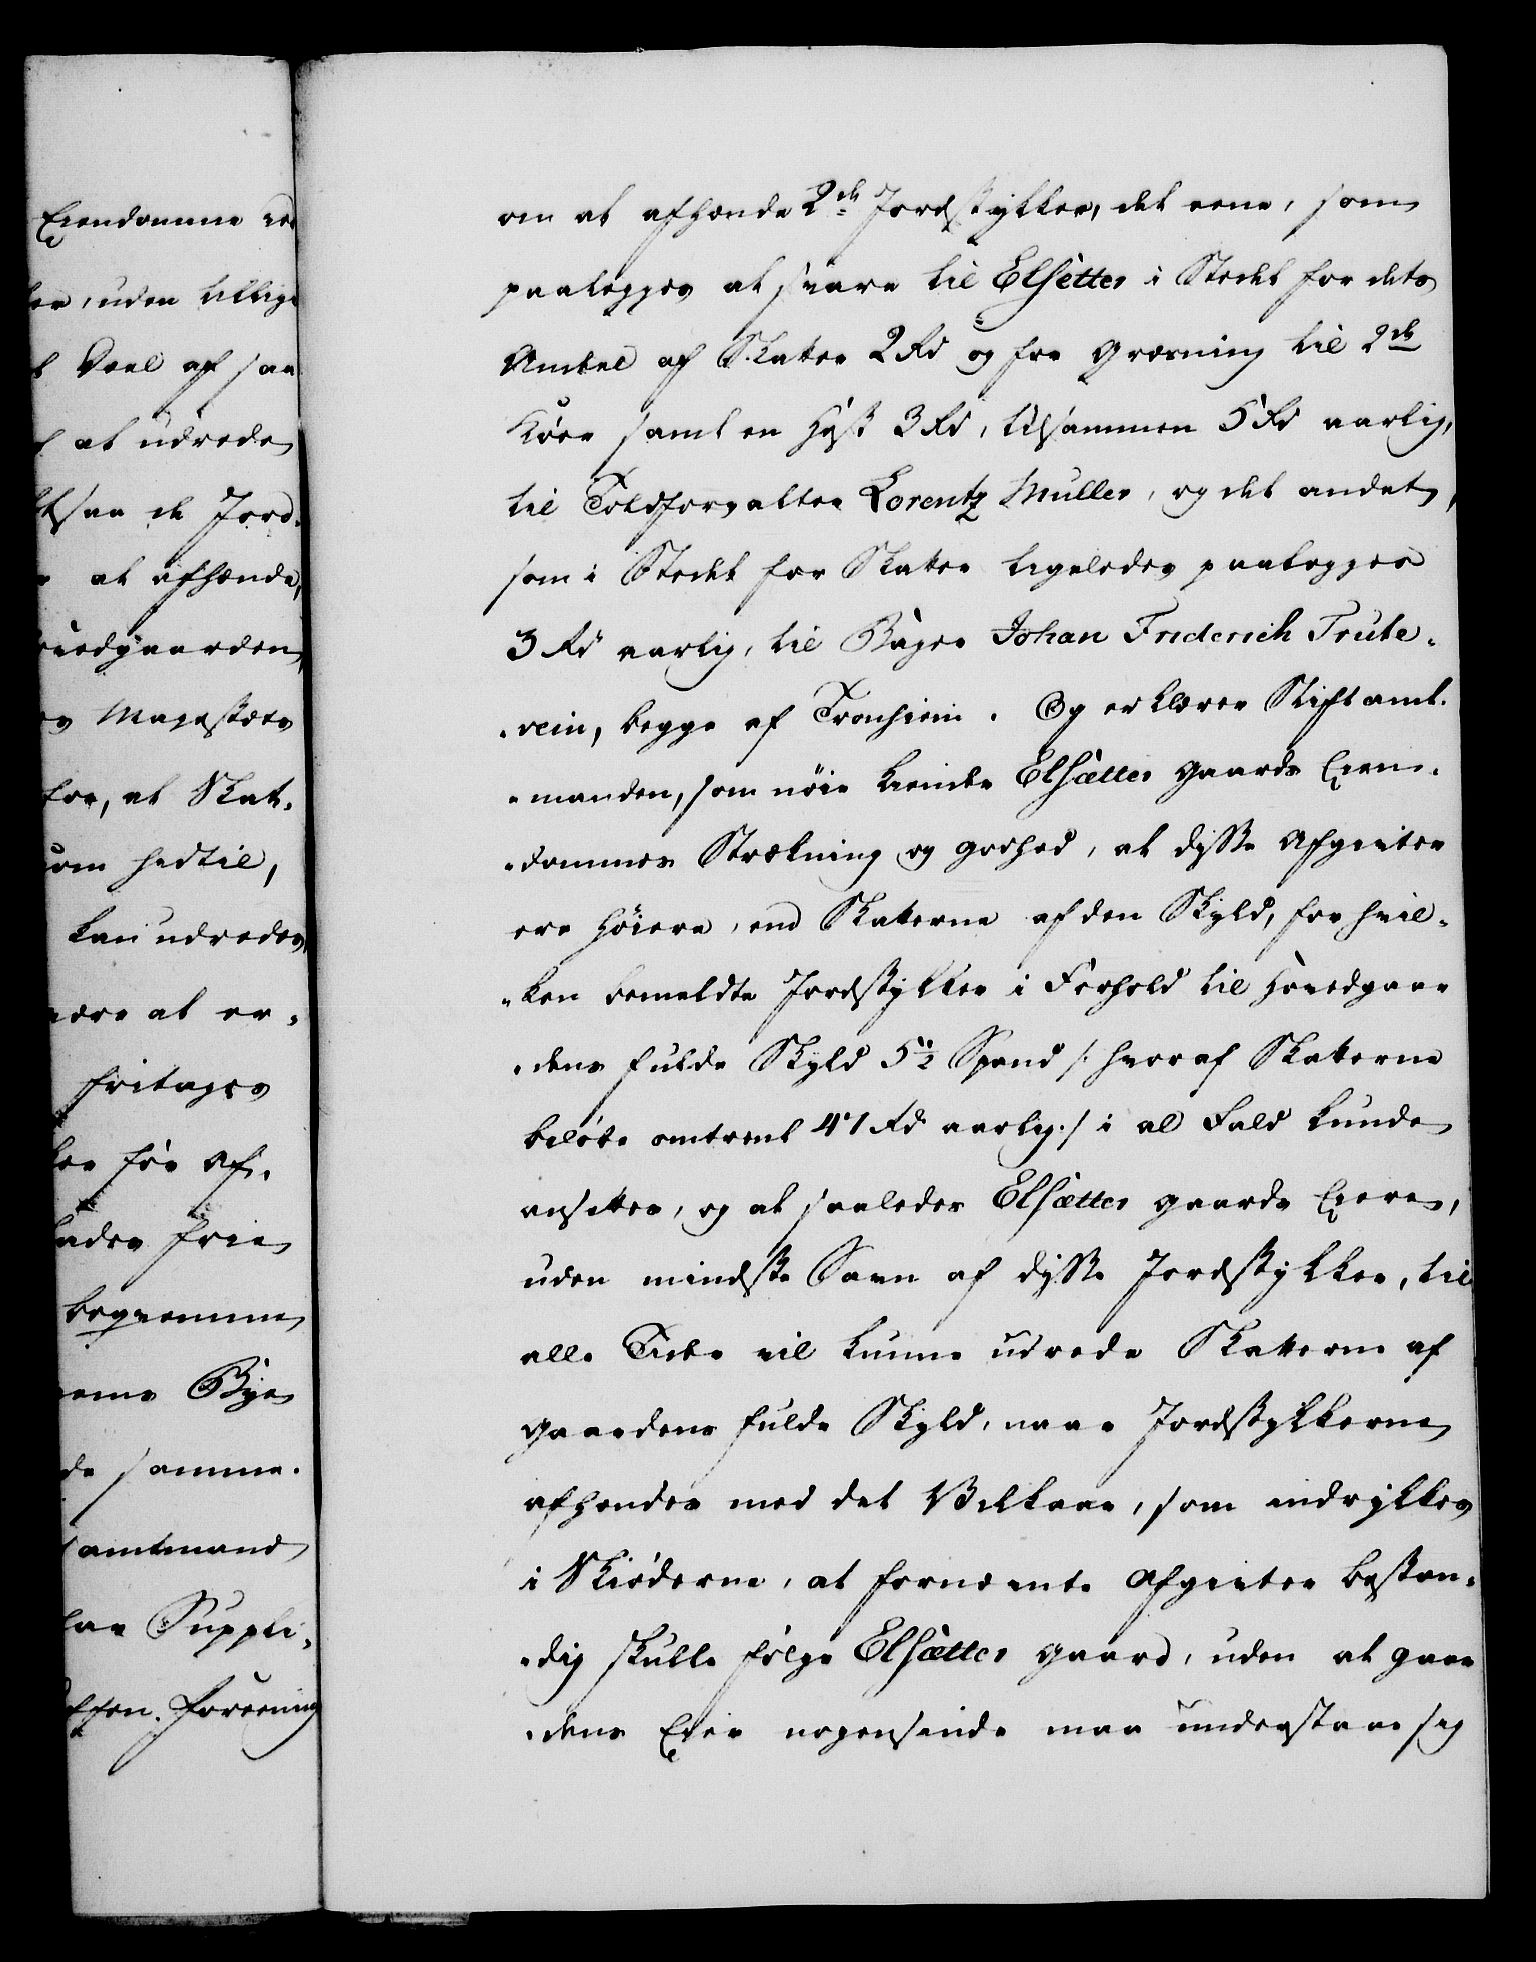 Eiendomme
uden tillige
Deel af saa
at udrede
saa de Jord-
at afhænde,
Majestæts
for, at Skat-
som hidtil,
kan udredes,
være at er-
fritages
for Af-
frie
beqvemme
Bye
samme.
amtmand
Suppli-
Foreening
om at afhænde 2de Jordstykker, det eene, som
paalegges at svare til Elsetter i Stedet for dets
Andeel af Skatter 2 Rd og for Græsning til 2de
Kiøer samt en Hest 3 Rd, tilsammen 5 Rd aarlig,
til Toldforvalter Lorentz Müller, og det andet,
som i Stedet for Skatter ligeledes paalegges
3 Rd aarlig, til Bager Johan Friderich Trute-
-vein, begge af Tronhiem. Og erklærer Stiftamt-
-manden, som nøie kiender Elsætter Gaards Eien-
-dommes Strækning og Godhed, at disse Afgivter
ere høiere, end Skatterne af den Skyld, for hvil-
-ken bemeldte Jordstykker i Forhold til Hovedgaar-
-dens fulde Skyld 5½ Spand /: hvoraf Skatterne
beløbe omtrent 41 Rd aarlig :/ i al Fald kunde
ansættes, og at saaledes Elsætter Gaards Eiere,
uden mindste Savn af disse Jordstykker, til
alle Tider vil kunne udrede Skatterne af
Gaardens fulde Skyld, naar Jordstykkerne
afhændes med det Vilkaar, som indrykkes
i Skiøderne, at fornævnte Afgivter bestan-
-dig skulle følge Elsætter Gaard, uden at Gaar-
-dens Eier nogensinde maa understaae sig